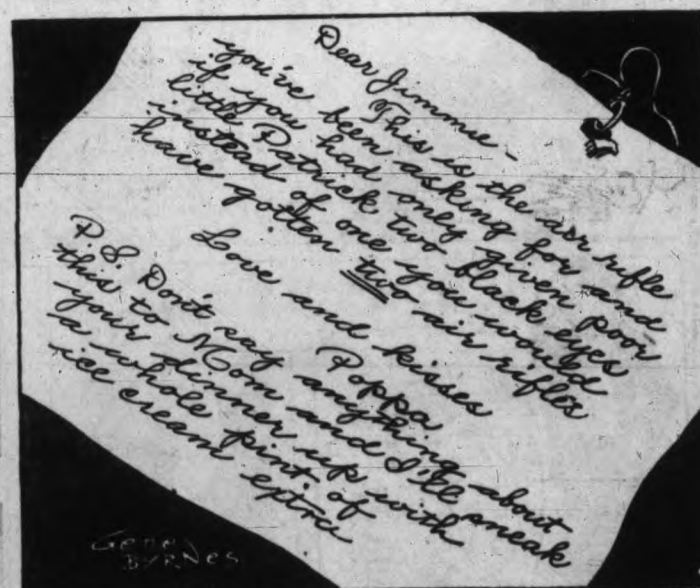 Dear Jimmie -
This is the air rifle
you've been asking for and
if you had only given poor
little Patrick two black eyes
instead of one you would
have gotten two air rifles
Love and kisses
Poppa
P.S. Don't say anything about
this to Mom and I'll sneak
your dinner up with
a whole pint of
ice cream extra
Gene
BYRNES